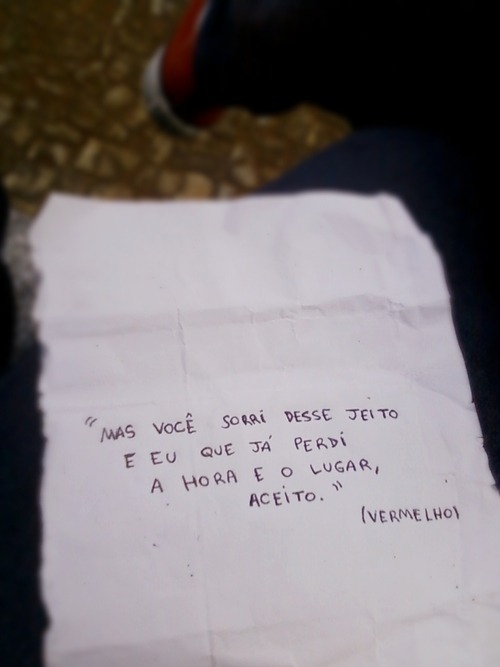 "MAS VOCÊ SORRI DESSE JEITO
E EU QUE JÁ PERDI
A HORA E O LUGAR,
ACEITO."
(VERMELHO)